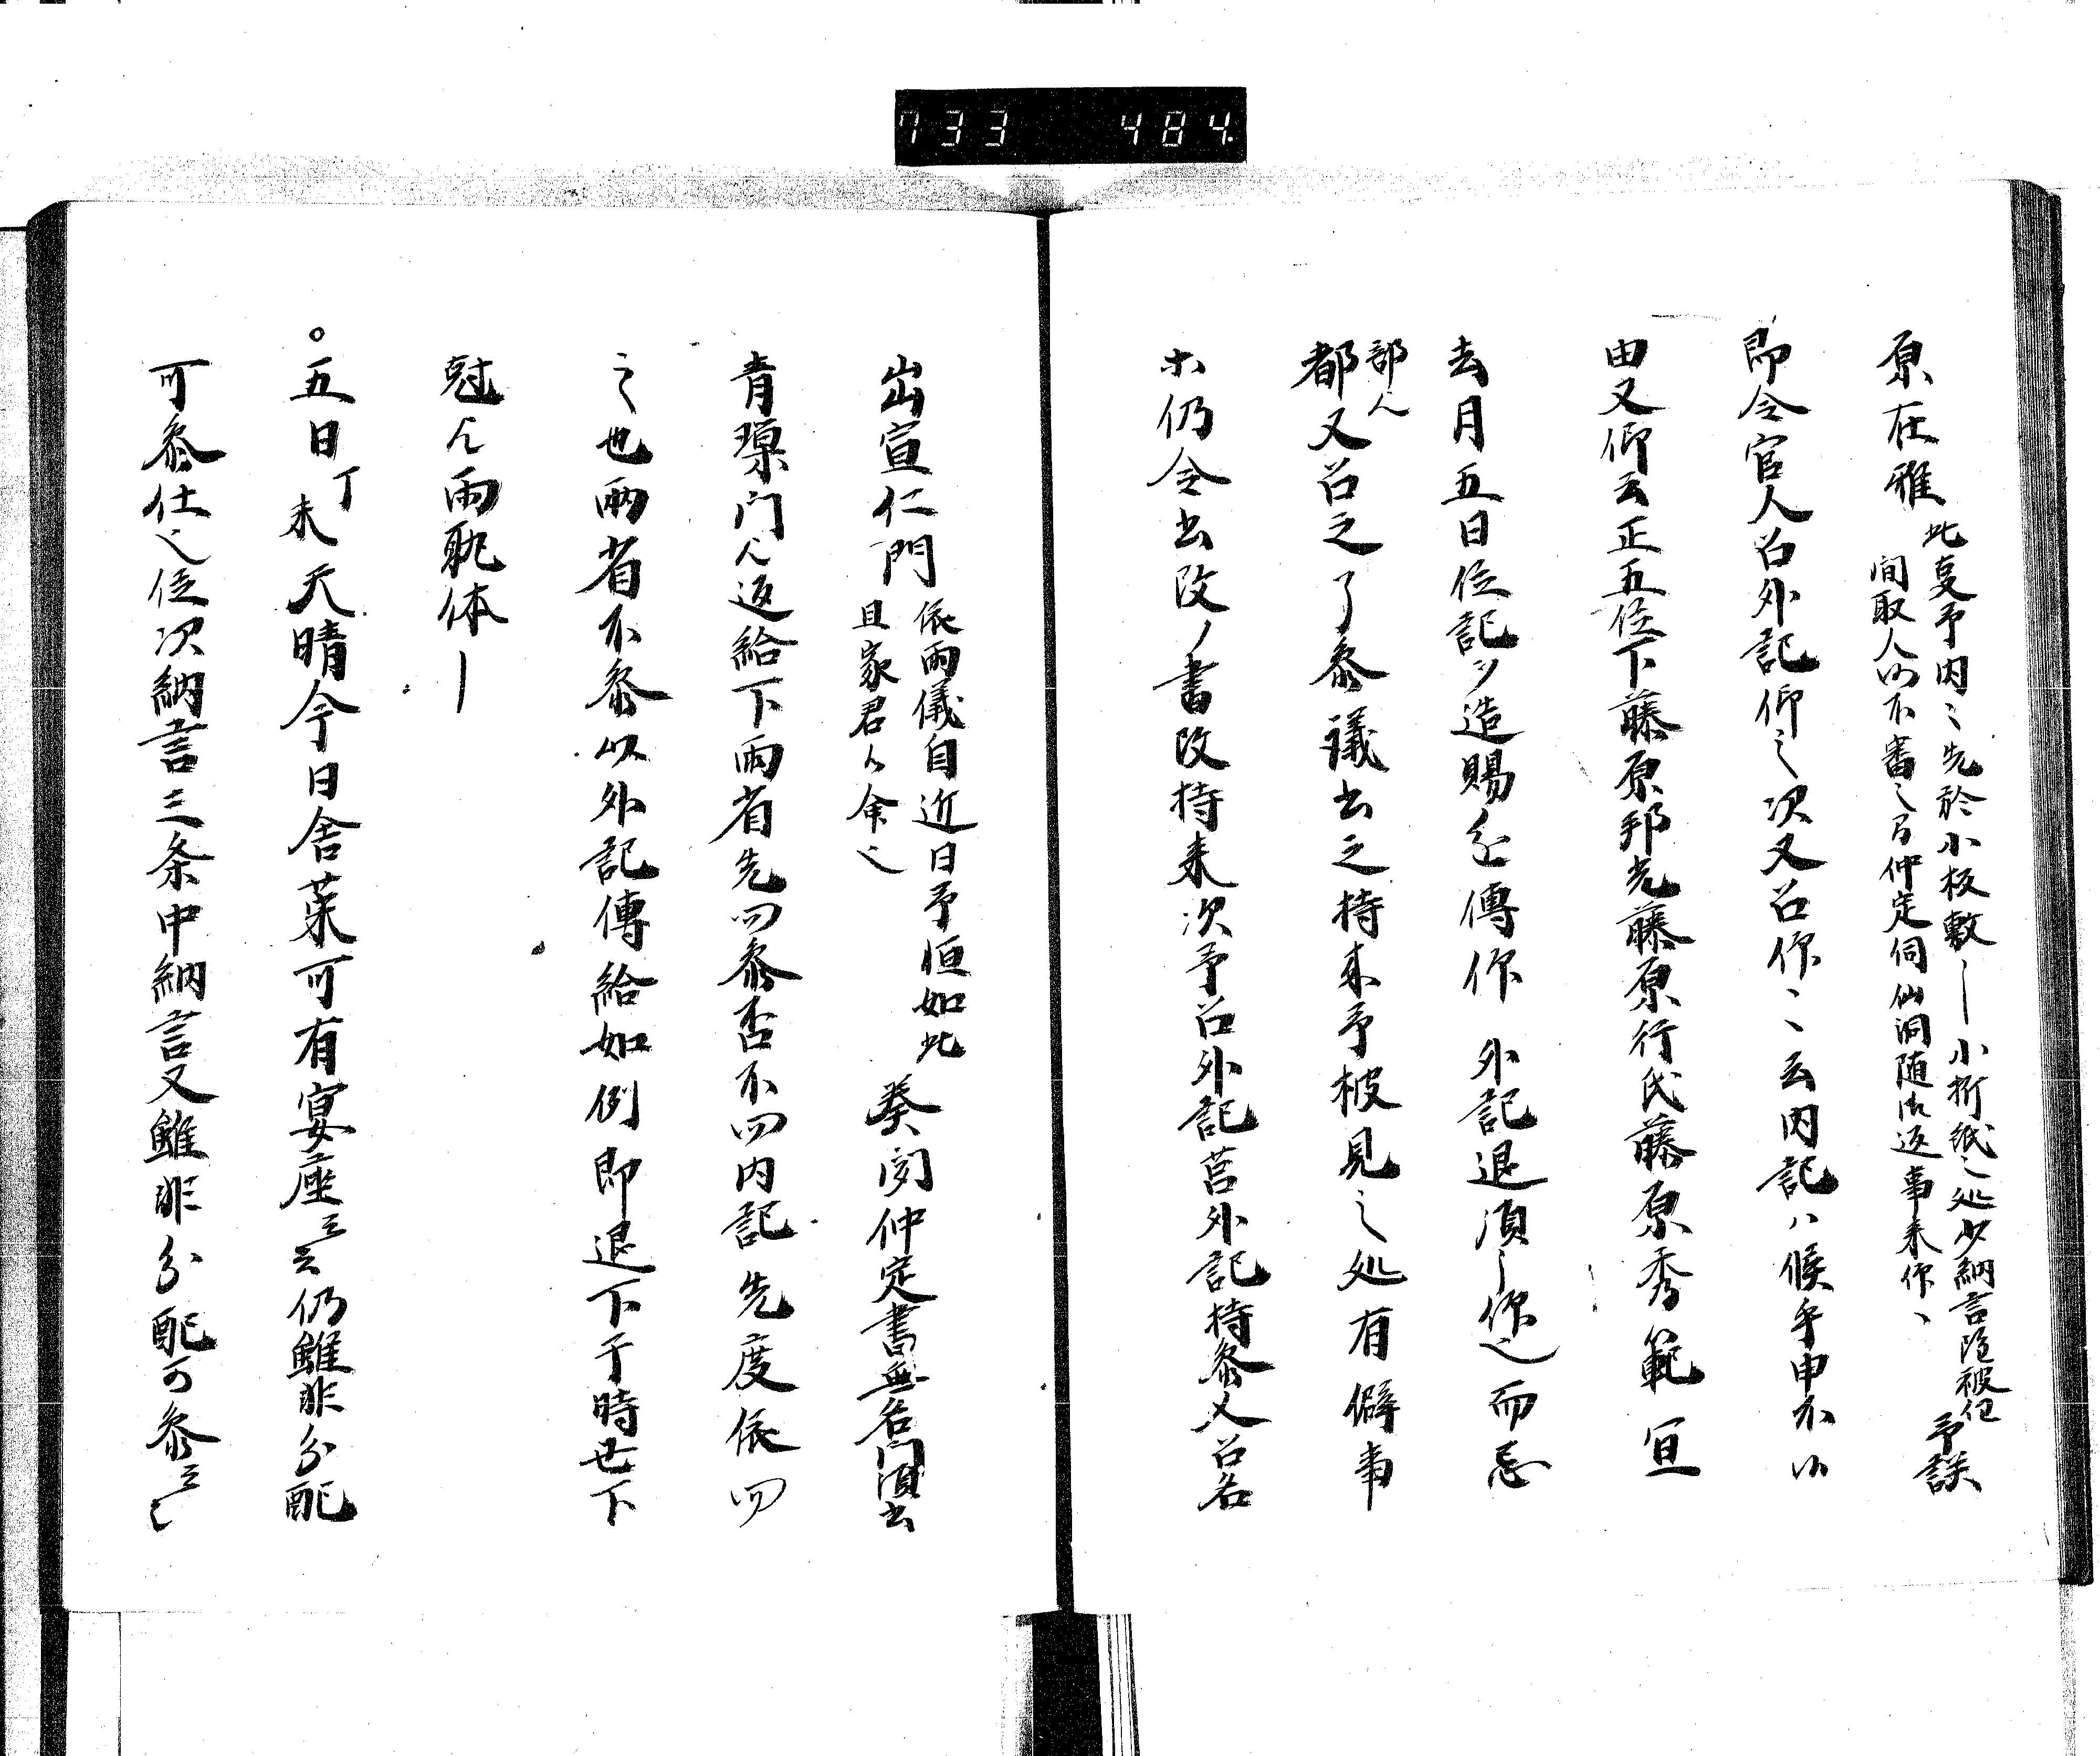 733 484
原在雅
此事予内々先於小板敷｜小折紙之処少納言隆被
間取人不審之間仲定伺仙洞随御返事来仰ヽ
予談
即令官人召外記仰之次又召仰ヽ云内記ハ候乎申不候
由又仰云正五位下藤原邦光藤原行氏藤原秀範宜
去月五日位記ヲ造賜ヘ傳仰外記退須仰之而忘
部ヘ
都又召之了参議書之持来予披見之処有僻事
ホ仍令書改ノ書改持来次予召外記筥外記持参又召名
出宣仁門
依雨儀自近日予恒如此
且家君以余之
参閑仲定書無名門須書
青瑣门ヘ返給下両省先問参否不問内記先度依問
之也両省不参以外記傳給如例即退下于時世下
冠ヘ雨
体｜
○五日丁未天晴今日舎菜可有宴座云云仍雖非分配
可参仕之位次納言三条中納言又雖非分配可参云々